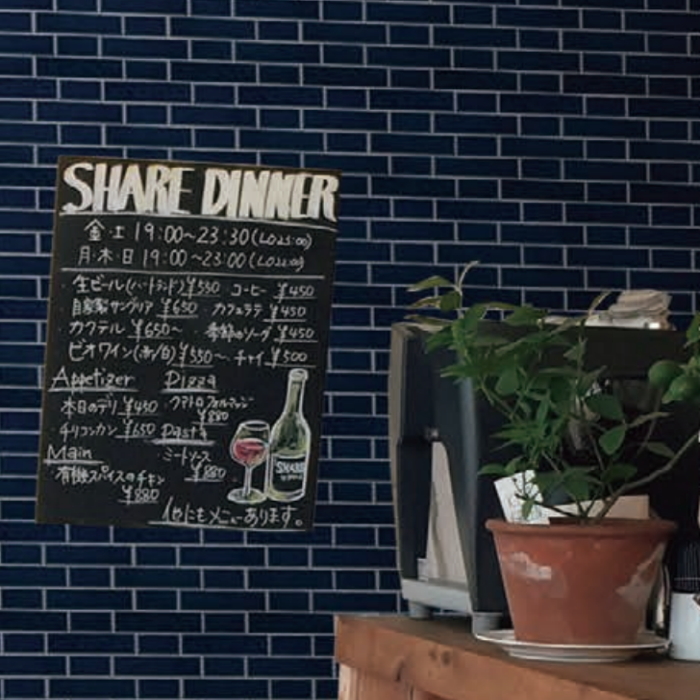 SHARE DINNER
金・土 19:00~23:30 (L.O23:00)
月・木・日 19:00~23:00 (L.O22:00)
・生ビール(ハートランド) ¥550 コーヒー ¥450
自家製サングリア ¥650 カフェラテ ¥450
・カクテル ¥650~ ・季節のソーダ ¥450
ビオワイン(赤/白) ¥550~ ・チャイ ¥500
Appetizer Pizza
・本日のデリ ¥450 ・クアトロフォルマッジ
¥880
・チリコンカン ¥650 Pasta
Main ・ミートソース
¥880
・有機スパイスのチキン
¥880
SHARE
他にもメニューあります。